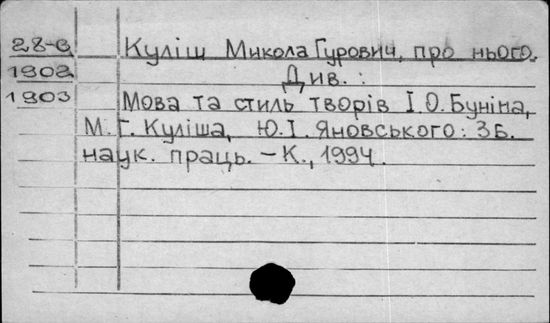 28-6 Куліш Микола Гурович, про нього.
1902 Див.:
1903 Мова та стиль творів І.О.Буніна,
М.Г.Куліша, Ю.І.Яновського: Зб.
наук. праць. – К., 1994.